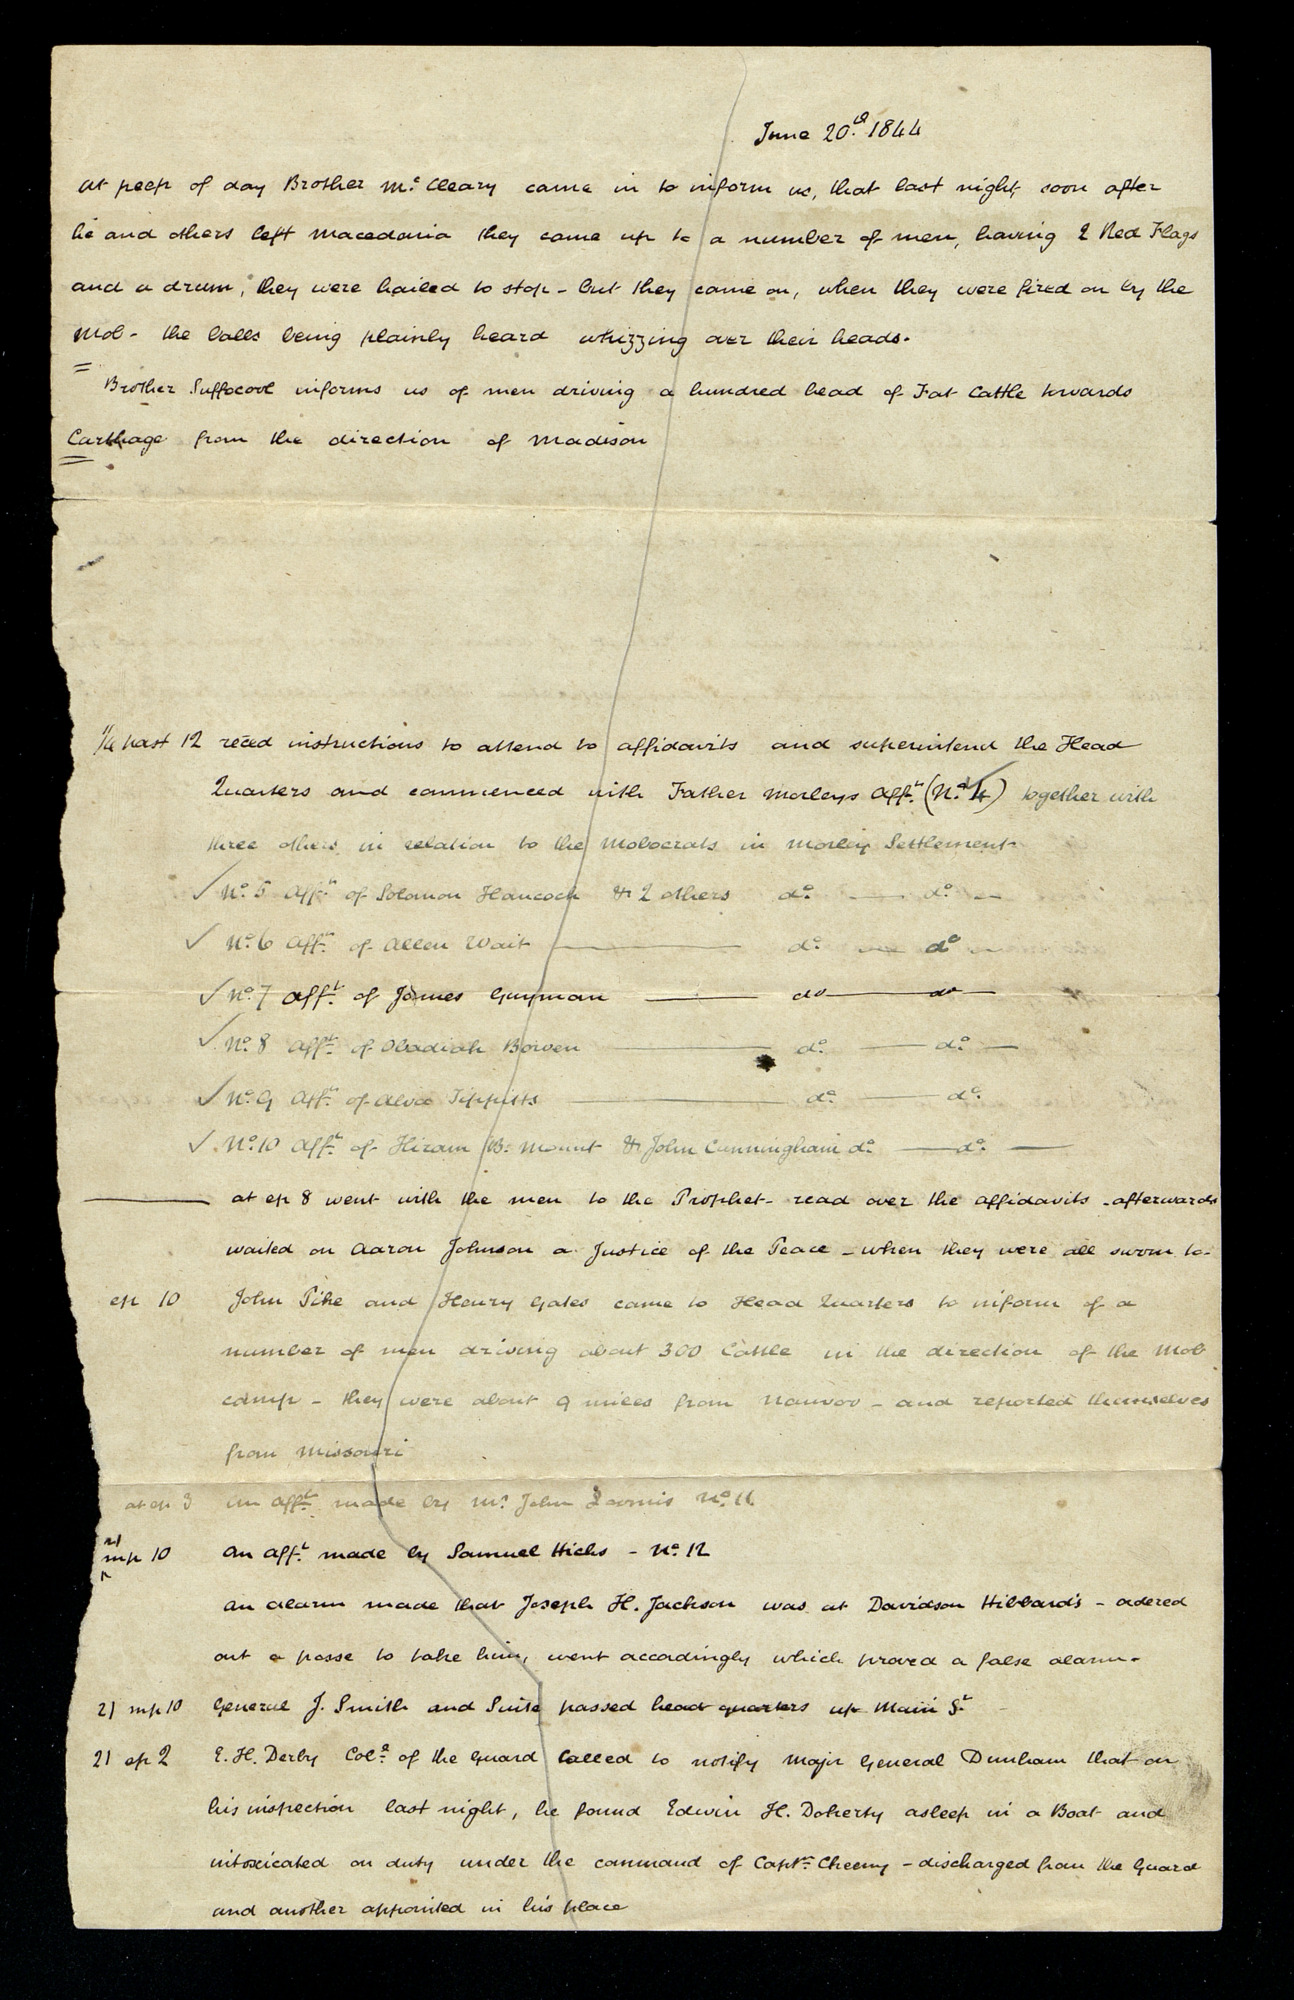 June 20.th 1844
at peep of day Brother Mc. Cleary came in to inform us, that last night, soon after
he and others left Macedonia they came up to a number of men, having 2 Red Flags
and a drum, they were hailed to stop - but they came on, when they were fired on by the
Mob - the balls being plainly heard whizzing over their heads.
Brother Suffocool informs us of men driving a hundred head of Fat Cattle towards
Carthage from the direction of Madison
1/4 past 12 reced instructions to attend to affidavits and superintend the Head
Quarters and commenced with Father Morleys Afft. (No. 4) together with
three others in relation to the Mobocrats in Morley Settlement
✓ No. 5 Afft. of Solomon Hancock & 2 others do. — do. —
✓ No. 6 Afft. of Allen Wait — do. — do —
✓ No. 7 Afft. of James Guyman — do — do —
✓ No. 8 Afft. of Obadiah Bowen — do. — do. —
✓ No. 9 Afft. of Alva Tippitts — do. — do.
✓ No. 10 Afft. of Hiram B. Mount & John Cunningham do. — do. —
— at ep 8 went with the men to the Prophet - read over the affidavits - afterwards
waited on Aaron Johnson a Justice of the Peace - when they were all sworn to -
ep 10 John Pike and Henry Gates came to Head Quarters to inform of a
number of men driving about 300 Cattle in the direction of the Mob
camp - they were about 9 miles from Nauvoo - and reported themselves
from Missouri
at ep 3 An Afft. made by Mr. John Loomis No. 11
21 mp 10 An Afft. made by Samuel Hicks - No. 12
An alarm made that Joseph H. Jackson was at Davidson Hibbard's - ordered
out a posse to take him, went accordingly which proved a false alarm.
21 mp 10 General J. Smith and Suite passed head quarters up Main St.
21 ep 2 E. H. Derby Col. of the Guard Called to notify Major General Dunham that on
his inspection last night, he found Edwin H. Doherty asleep in a Boat and
intoxicated on duty under the command of Captn. Cheeny - discharged from the Guard
and another appointed in his place